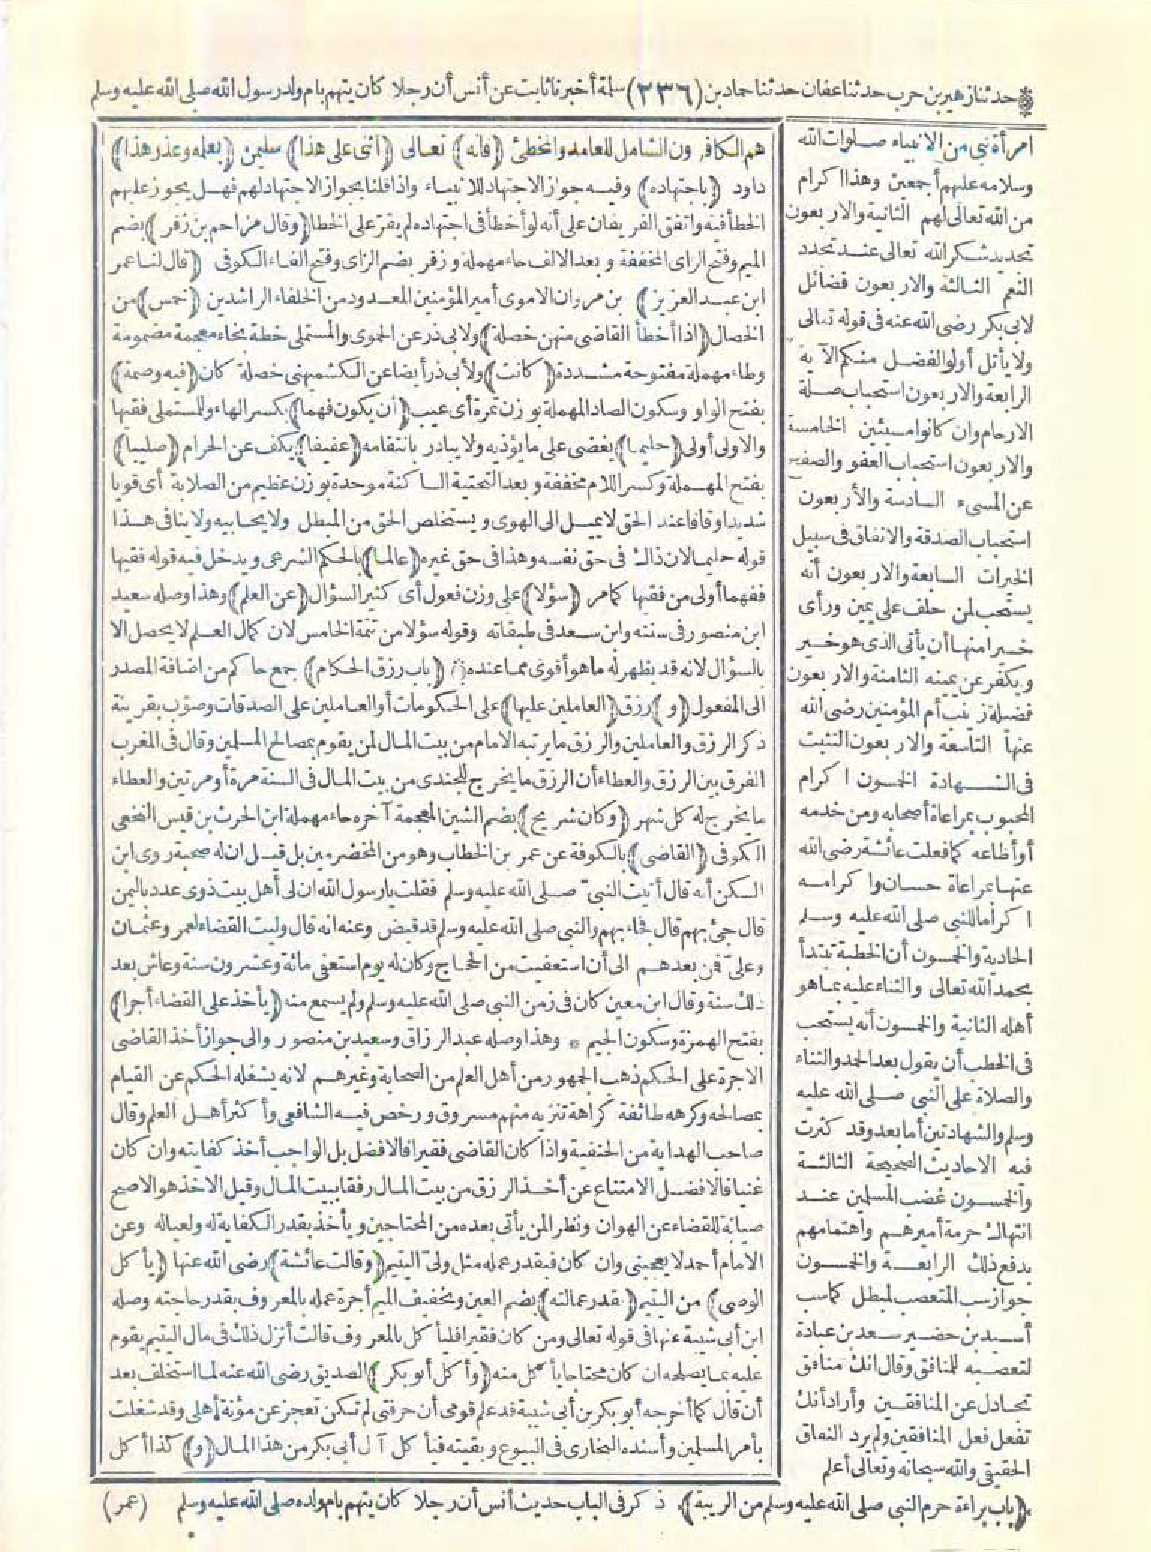 حدثنا زهير بن حرب حدثنا عفان حدثنا حماد بن (٢٣٦) سلمة أخبرنا ثابت عن أنس أن رجلا كان يتهم بام ولد رسول الله صلى الله عليه وسلم
امرأة نبي من الانبياء صلوات الله
وسلامه عليهم أجمعين وهذا اكرام
من الله تعالى لهم الثانية والاربعون
تجديد شكر الله تعالى عند تجدد
النعم الثالثة والاربعون فضائل
لابى بكر رضى الله عنه فى قوله تعالى
ولا يأتل أولوا الفضل منكم الآية
الرابعة والاربعون استحباب صلة
الارحام وان كانوا مسيئين الخامسة
والاربعون استحباب العفو والصفح
عن المسىء السادسة والأربعون
استحباب الصدقة والانفاق فى سبيل
الخيرات السابعة والاربعون أنه
يستحب لمن حلف على يمين ورأى
خيرا منها أن يأتى الذى هو خير
ويكفر عن يمينه الثامنة والاربعون
فضيلة زينب أم المؤمنين رضى الله
عنها التاسعة والاربعون التثبت
فى الشهادة الخمسون اكرام
المحبوب بمراعاة أصحابه ومن خدمه
أو أطاعه كما فعلت عائشة رضى الله
عنها بمراعاة حسان واكرامه
اكراما للنبى صلى الله عليه وسلم
الحادية والخمسون أن الخطبة تبتدأ
بحمد الله تعالى والثناء عليه بما هو
أهله الثانية والخمسون أنه يستحب
فى الخطب أن يقول بعد الحمد والثناء
والصلاة على النبى صلى الله عليه
وسلم والشهادتين أما بعد وقد كثرت
فيه الاحاديث الصحيحة الثالثة
والخمسون غضب المسلمين عند
انتهاك حرمة أميرهم واهتمامهم
بدفع ذلك الرابعة والخمسون
جواز سب المتعصب لمبطل كما سب
أسيد بن حضير سعد بن عبادة
لتعصبه للمنافق وقال انك منافق
تجادل عن المنافقين وأراد أنك
تفعل فعل المنافقين ولم يرد النفاق
الحقيقى والله سبحانه وتعالى أعلم
هم الكافرون الشامل للعامد والمخطئ (فانه) تعالى (أثنى على هذا) سليمن (بعلمه وعذر هذا)
داود (باجتهاده) وفيه جواز الاجتهاد للانبياء واذا قلنا بجواز الاجتهاد لهم فهل يجوز عليهم
الخطأ فيه واتفق الفريقان على أنه لو أخطأ فى اجتهاده لم يقر على الخطا (وقال مزاحم بن زفر) بضم
الميم وفتح الزاى المخففة وبعد الالف حاء مهملة وزفر بضم الزاى وفتح الفاء الكوفى (قال لنا عمر
ابن عبد العزيز) بن مروان الاموى أمير المؤمنين المعدود من الخلفاء الراشدين (خمس) من
الخصال (اذا أخطأ القاضى منهن خصلة) ولابى ذر عن الحموى والمستملى خطة بخاء معجمة مضمومة
وطاء مهملة مفتوحة مشددة (كانت) ولأبى ذر أيضا عن الكشميهنى خصلة كان (فيه وصمة)
بفتح الواو وسكون الصاد المهملة بوزن تمرة أى عيب (أن يكون فهما) بكسر الهاء وللمستملى فقيها
والاولى أولى (حليما) يغضى على ما يؤذيه ولا يبادر بانتقامه (عفيفا) يكف عن الحرام (صليبا)
بفتح المهملة وكسر اللام مخففة وبعد التحتية الساكنة موحدة بوزن عظيم من الصلابة أى قويا
شديدا وقافا عند الحق لا يميل الى الهوى ويستخلص الحق من المبطل ولا يحابيه ولا ينافى هذا
قوله حليما لان ذاك فى حق نفسه وهذا فى حق غيره (عالما) بالحكم الشرعى ويدخل فيه قوله فقيها
ففهما أولى من فقيها كما مر (سؤلا) على وزن فعول أى كثير السؤال (عن العلم) وهذا وصله سعيد
ابن منصور فى سننه وابن سعد فى طبقاته وقوله سؤلا من تتمة الخامس لان كمال العلم لا يحصل الا
بالسؤال لانه قد يظهر له ما هو أقوى مما عنده (باب رزق الحكام) جمع حاكم من اضافة المصدر
الى المفعول (و) رزق (العاملين عليها) على الحكومات أو العاملين على الصدقات وصوّب بقرينة
ذكر الرزق والعاملين والرزق ما يرتبه الامام من بيت المال لمن يقوم بمصالح المسلمين وقال فى المغرب
الفرق بين الرزق والعطاء أن الرزق ما يخرج للجندى من بيت المال فى السنة مرة أو مرتين والعطاء
ما يخرج له كل شهر (وكان شريح) بضم الشين المعجمة آخره حاء مهملة ابن الحرث بن قيس النخعى
الكوفى (القاضى) بالكوفة عن عمر بن الخطاب وهو من المخضرمين بل قيل ان له صحبة روى ابن
السكن أنه قال أتيت النبىّ صلى الله عليه وسلم فقلت يا رسول الله ان لى أهل بيت ذوى عدد باليمن
قال جئ بهم قال فجاء بهم والنبى صلى الله عليه وسلم قد قبض وعنه انه قال وليت القضاء لعمر وعثمان
وعلىّ فمن بعدهم الى أن استعفيت من الحجاج وكان له يوم استعفى مائة وعشرون سنة وعاش بعد
ذلك سنة وقال ابن معين كان فى زمن النبى صلى الله عليه وسلم ولم يسمع منه (يأخذ على القضاء أجرا)
بفتح الهمزة وسكون الجيم * وهذا وصله عبد الرزاق وسعيد بن منصور والى جواز أخذ القاضى
الاجرة على الحكم ذهب الجمهور من أهل العلم من الصحابة وغيرهم لانه يشغله الحكم عن القيام
بمصالحه وكرهه طائفة كراهة تنزيه منهم مسروق ورخص فيه الشافعى وأكثر أهل العلم وقال
صاحب الهداية من الحنفية واذا كان القاضى فقيرا فالافضل بل الواجب أخذ كفايته وان كان
غنيا فالافضل الامتناع عن أخذ الرزق من بيت المال رفقا ببيت المال وقيل الاخذ هو الاصح
صيانة للقضاء عن الهوان ونظرا لمن يأتى بعده من المحتاجين ويأخذ بقدر الكفاية له ولعياله وعن
الامام أحمد لا يعجبنى وان كان فبقدر عمله مثل ولىّ اليتيم (وقالت عائشة) رضى الله عنها (يأكل
الوصى) من اليتيم (بقدر عمالته) بضم العين وتخفيف الميم أجرة عمله بالمعروف بقدر حاجته وصله
ابن أبى شيبة عنها فى قوله تعالى ومن كان فقيرا فليأكل بالمعروف قالت أنزل ذلك فى مال اليتيم يقوم
عليه بما يصلحه ان كان محتاجا يأكل منه (وأكل أبو بكر) الصديق رضى الله عنه لما استخلف بعد
أن قال كما أخرجه أبو بكر بن أبى شيبة قد علم قومى أن حرفتى لم تكن تعجز عن مؤنة أهلى وقد شغلت
بأمر المسلمين وأسنده البخارى فى البيوع وبقيته فيأكل آل أبى بكر من هذا المال (و) كذا أكل
(باب براءة حرم النبى صلى الله عليه وسلم من الريبة) ذكر فى الباب حديث أنس أن رجلا كان يتهم بام ولده صلى الله عليه وسلم (عمر)